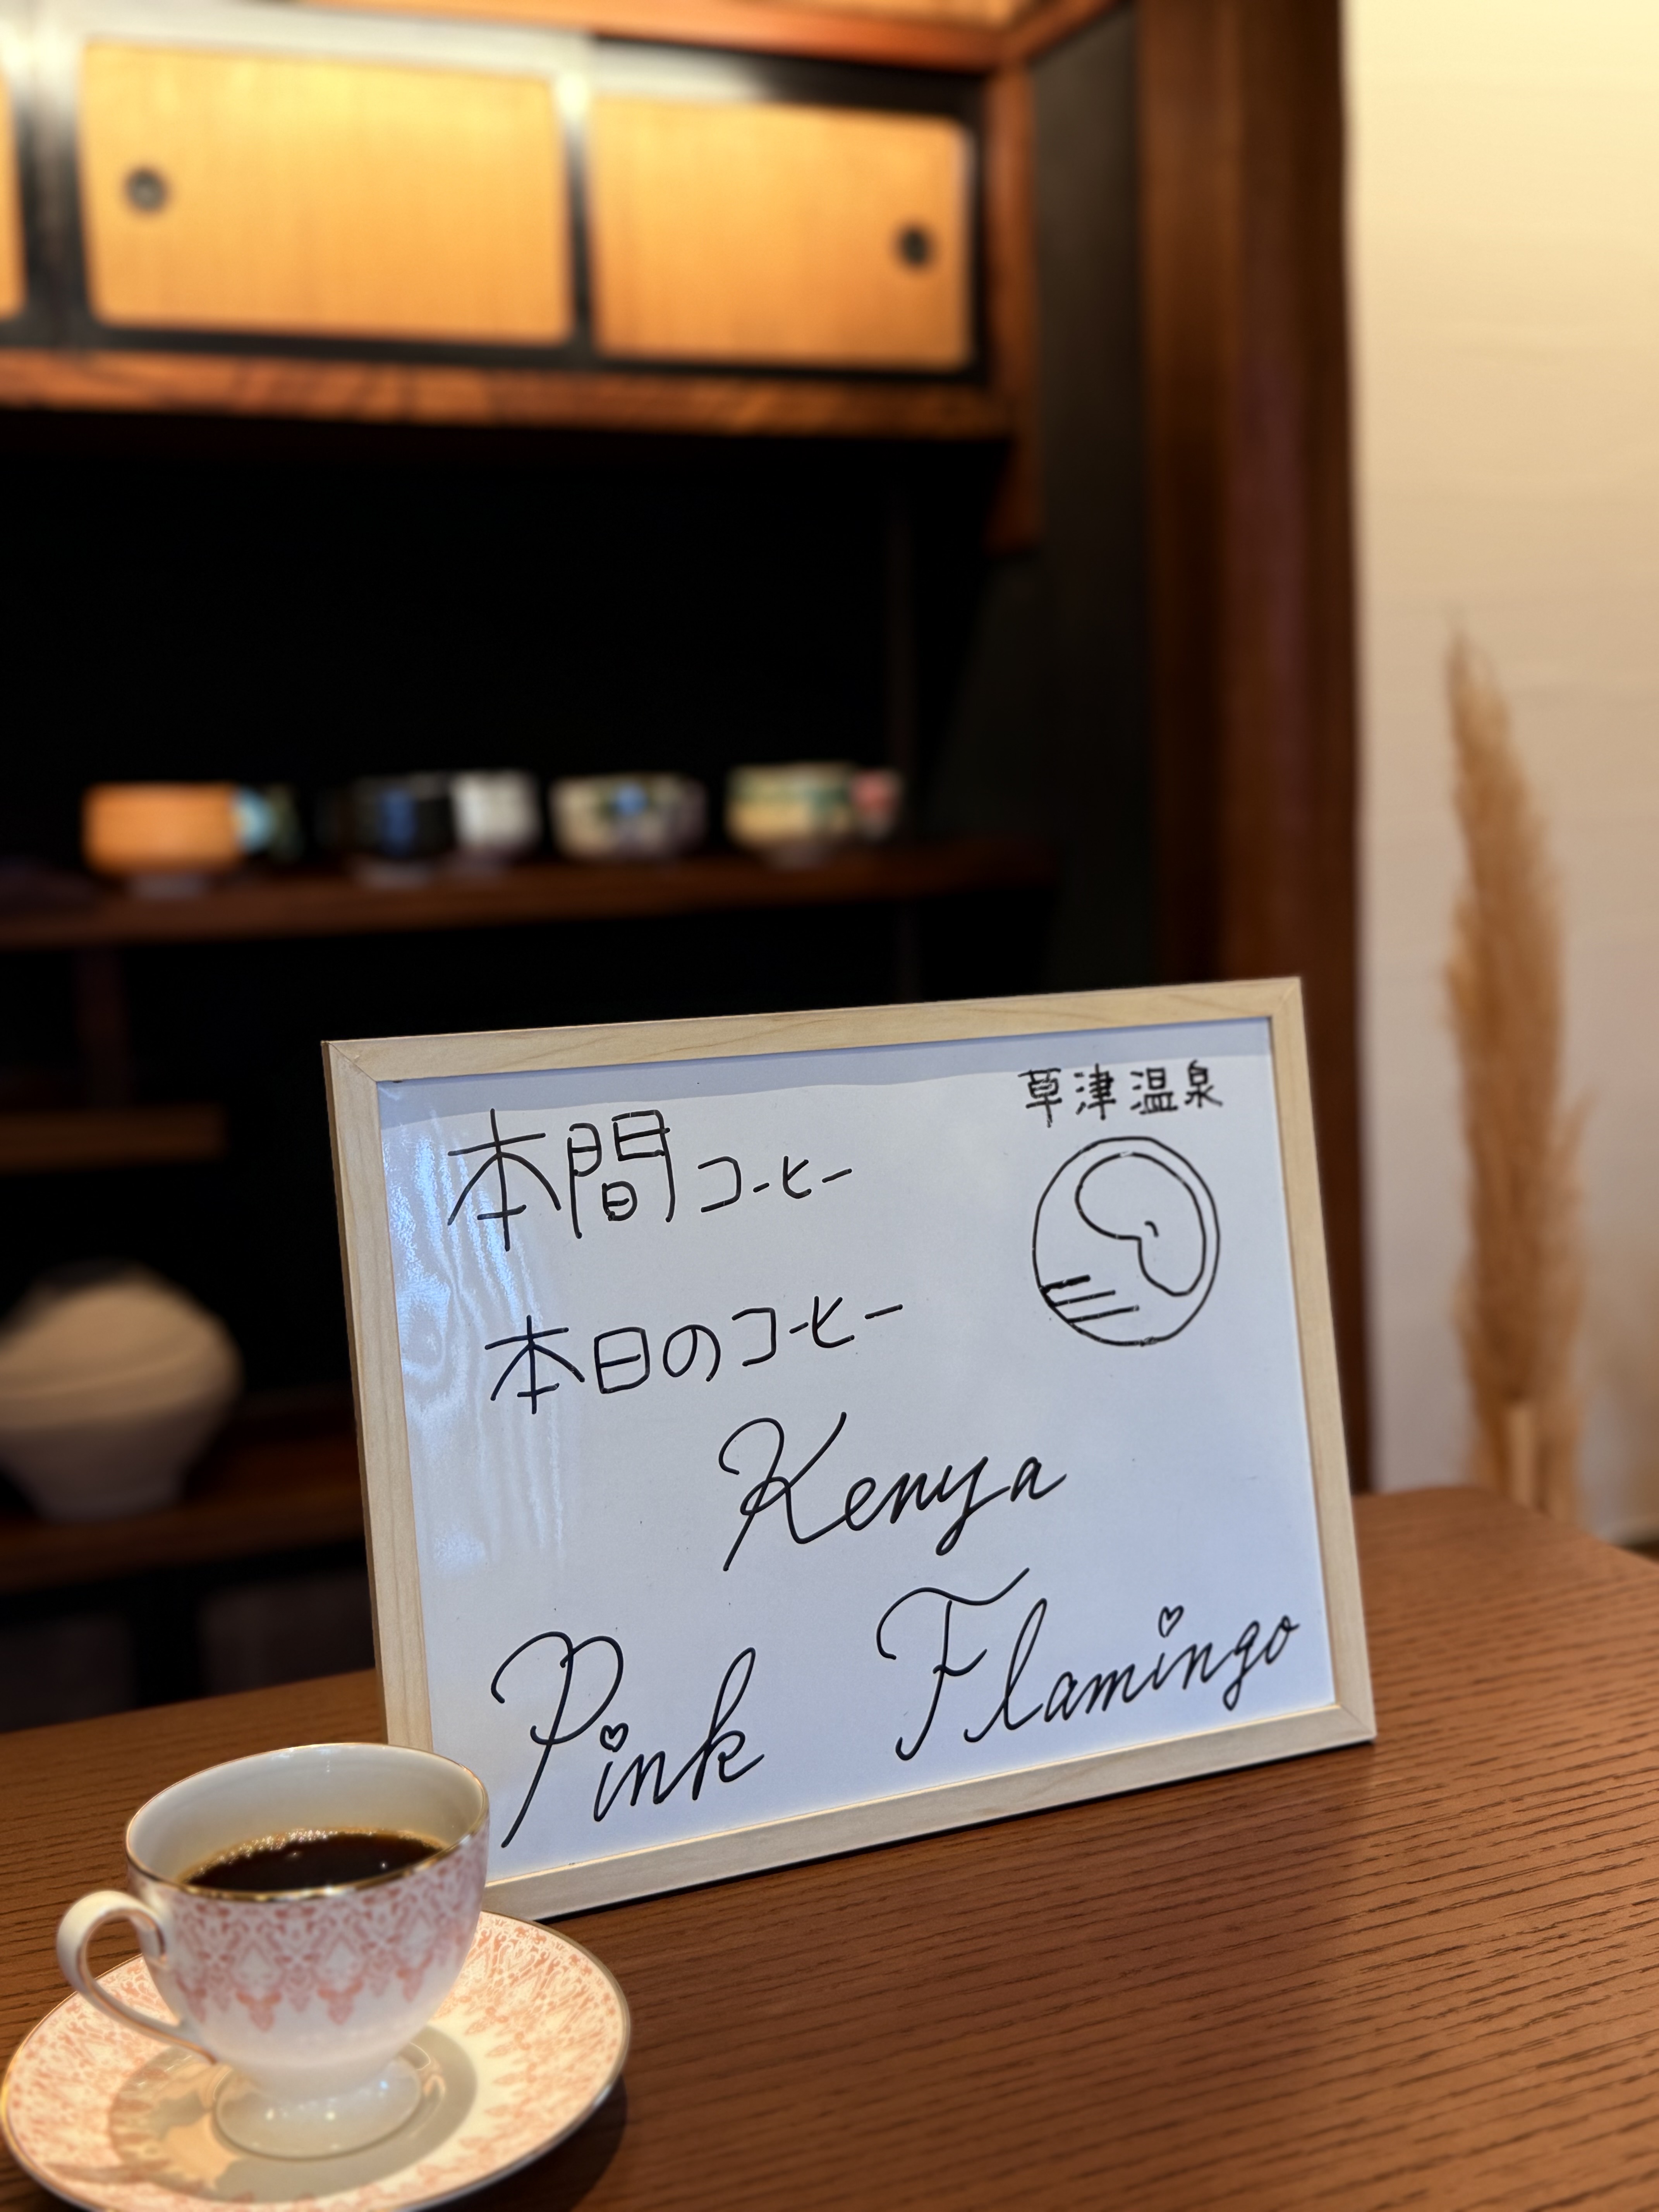 草津温泉
本間コーヒー
本日のコーヒー
Kenya
Pink Flamingo